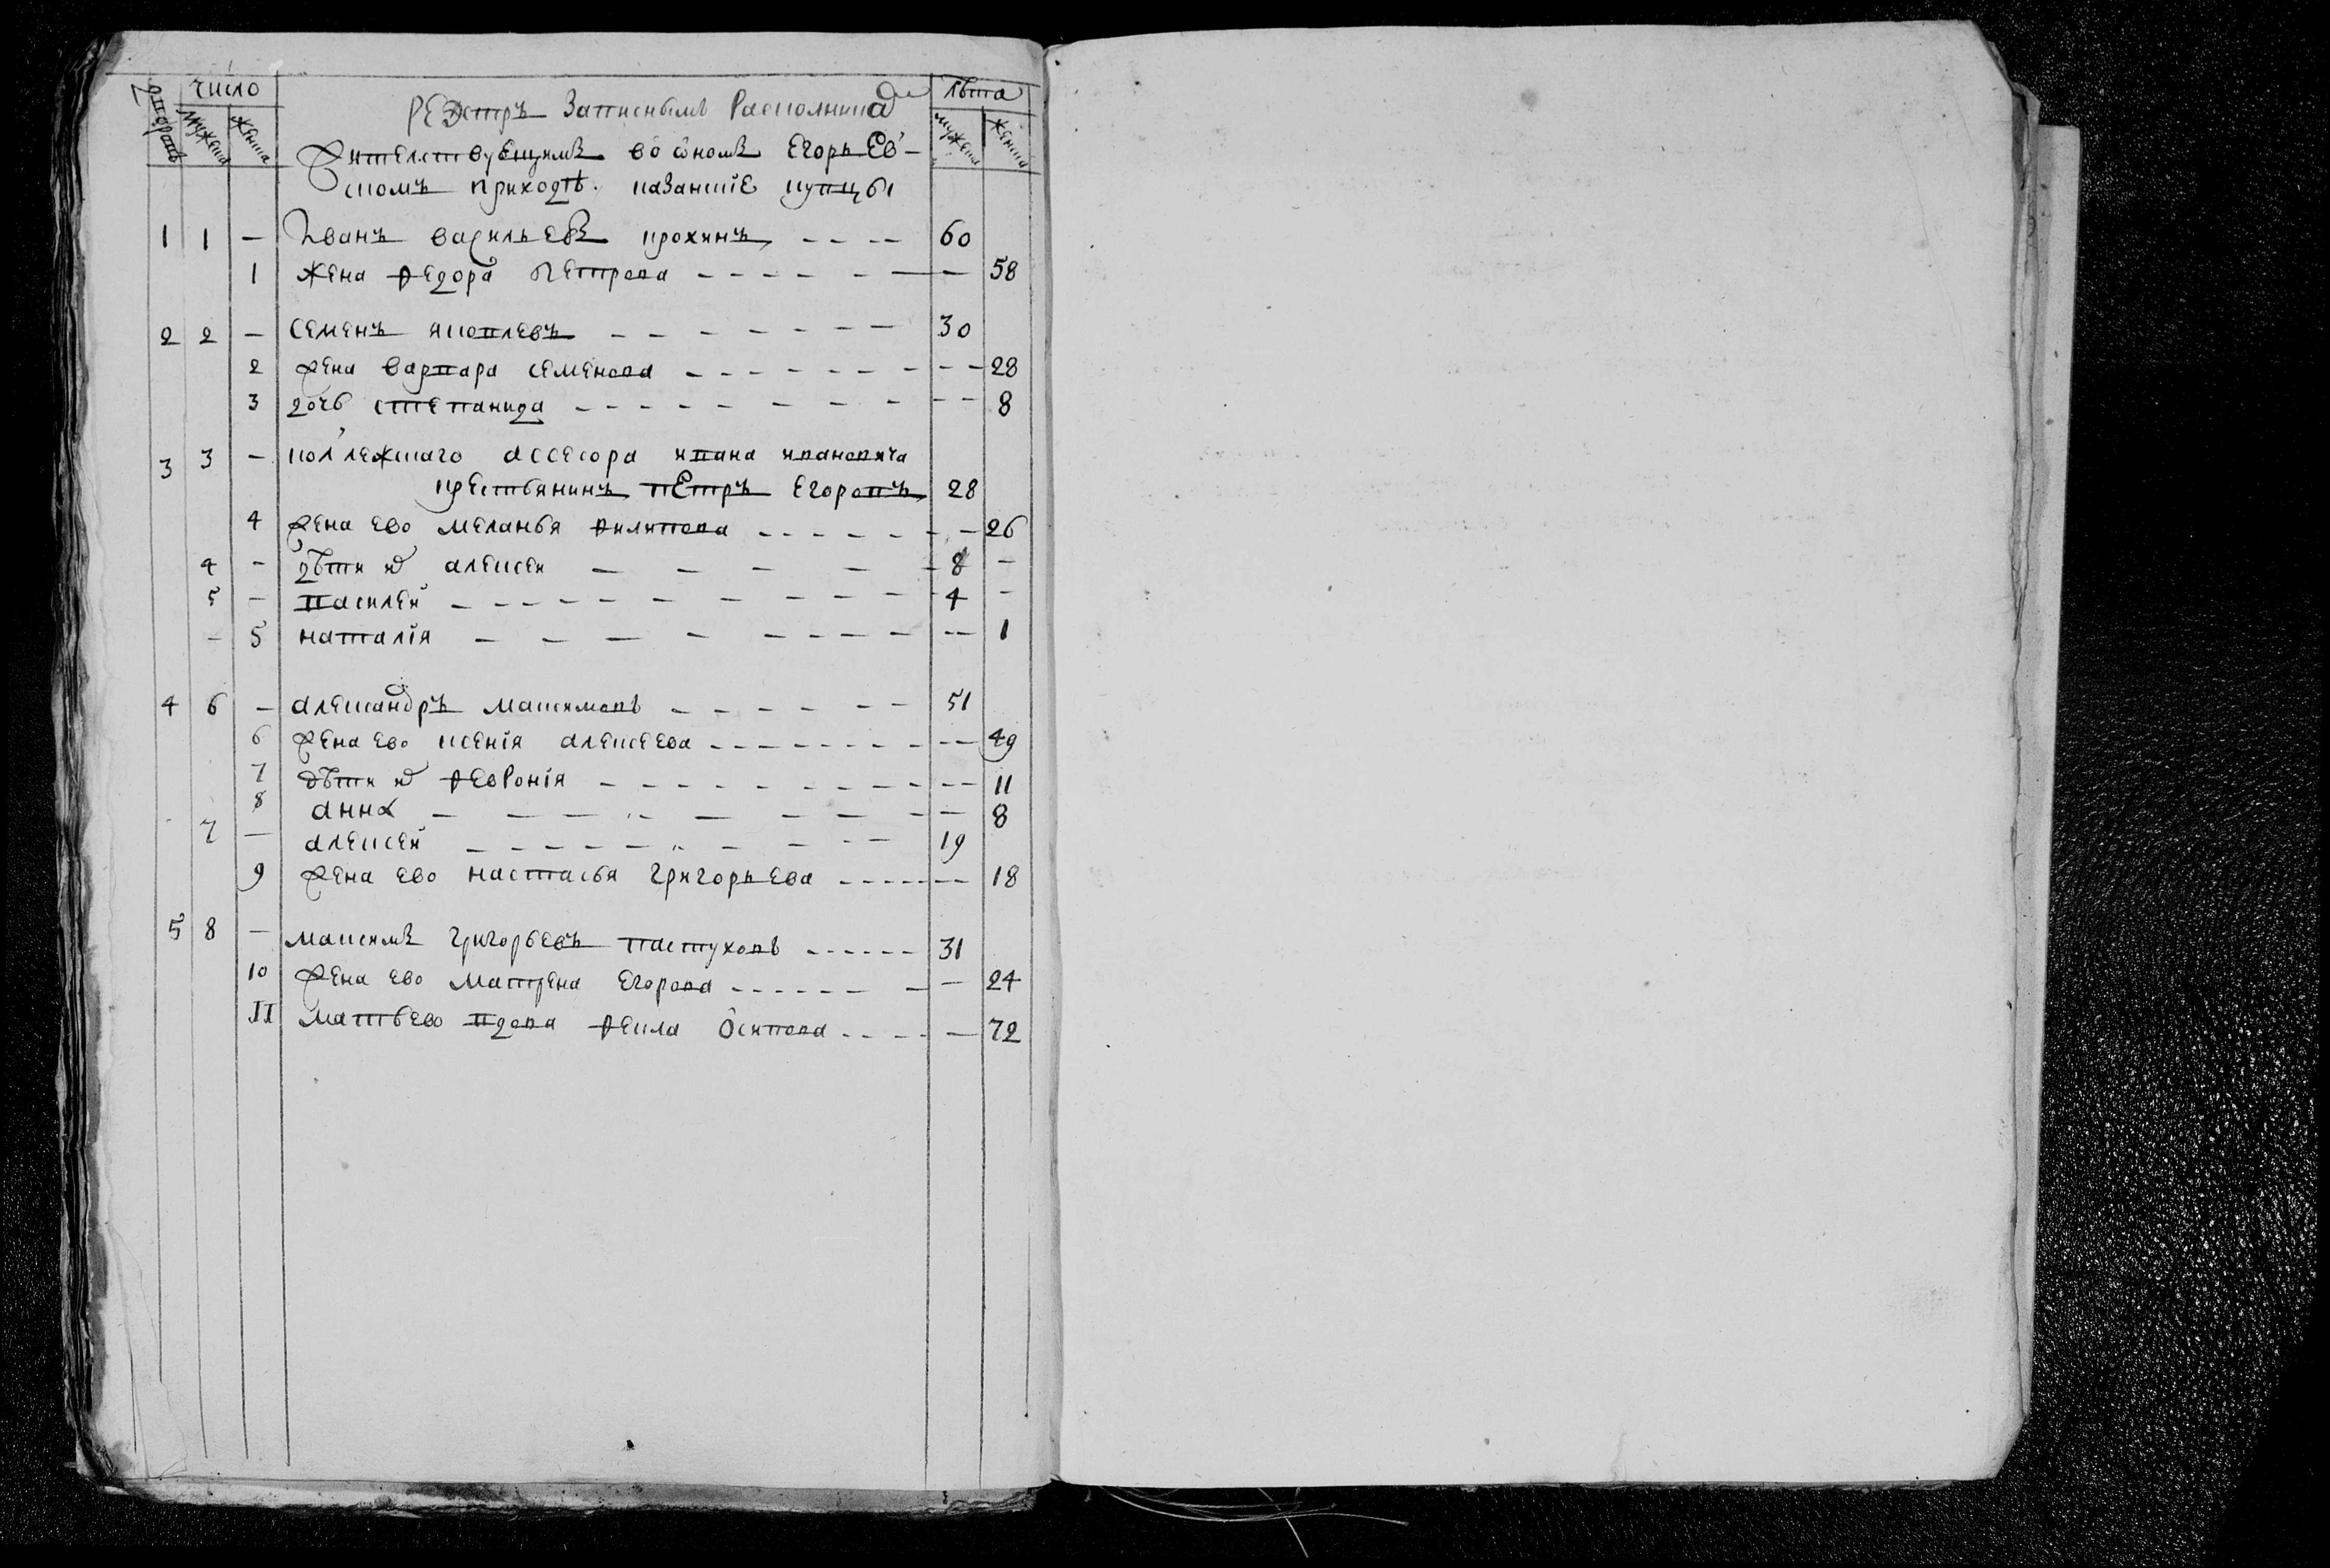 дворовъ число мужска женска лѣта мужеска женска
реэстръ записнымъ расколникам
жителствующимъ во оном Егорьев-
скомъ приходѣ. казанскіе купцы
1 1 — Иванъ Васильевъ прохинъ 60
1 жена федора петрова — 58
2 2 — семенъ яковлевъ 30
2 жена варвара семенова — 28
3 дочь степанида — 8
3 3 — коллежскаго ассесора ивана ивановича
крестьянинъ петръ егоровъ 28
4 жена ево меланья филипова — 26
4 — дѣти их алексеи 8 —
5 — василей 4 —
— 5 наталія — 1
4 6 — александръ максимовъ 51
6 жена ево ксенія алексеева — 49
7 дѣти их февронія — 11
8 анна — 8
7 — алексей 19
9 жена ево настасья григорьева — 18
5 8 — максимъ григорьевъ пастуховъ 31
10 жена ево матрена егорова — 24
11 мать ево вдова фекла осипова — 72